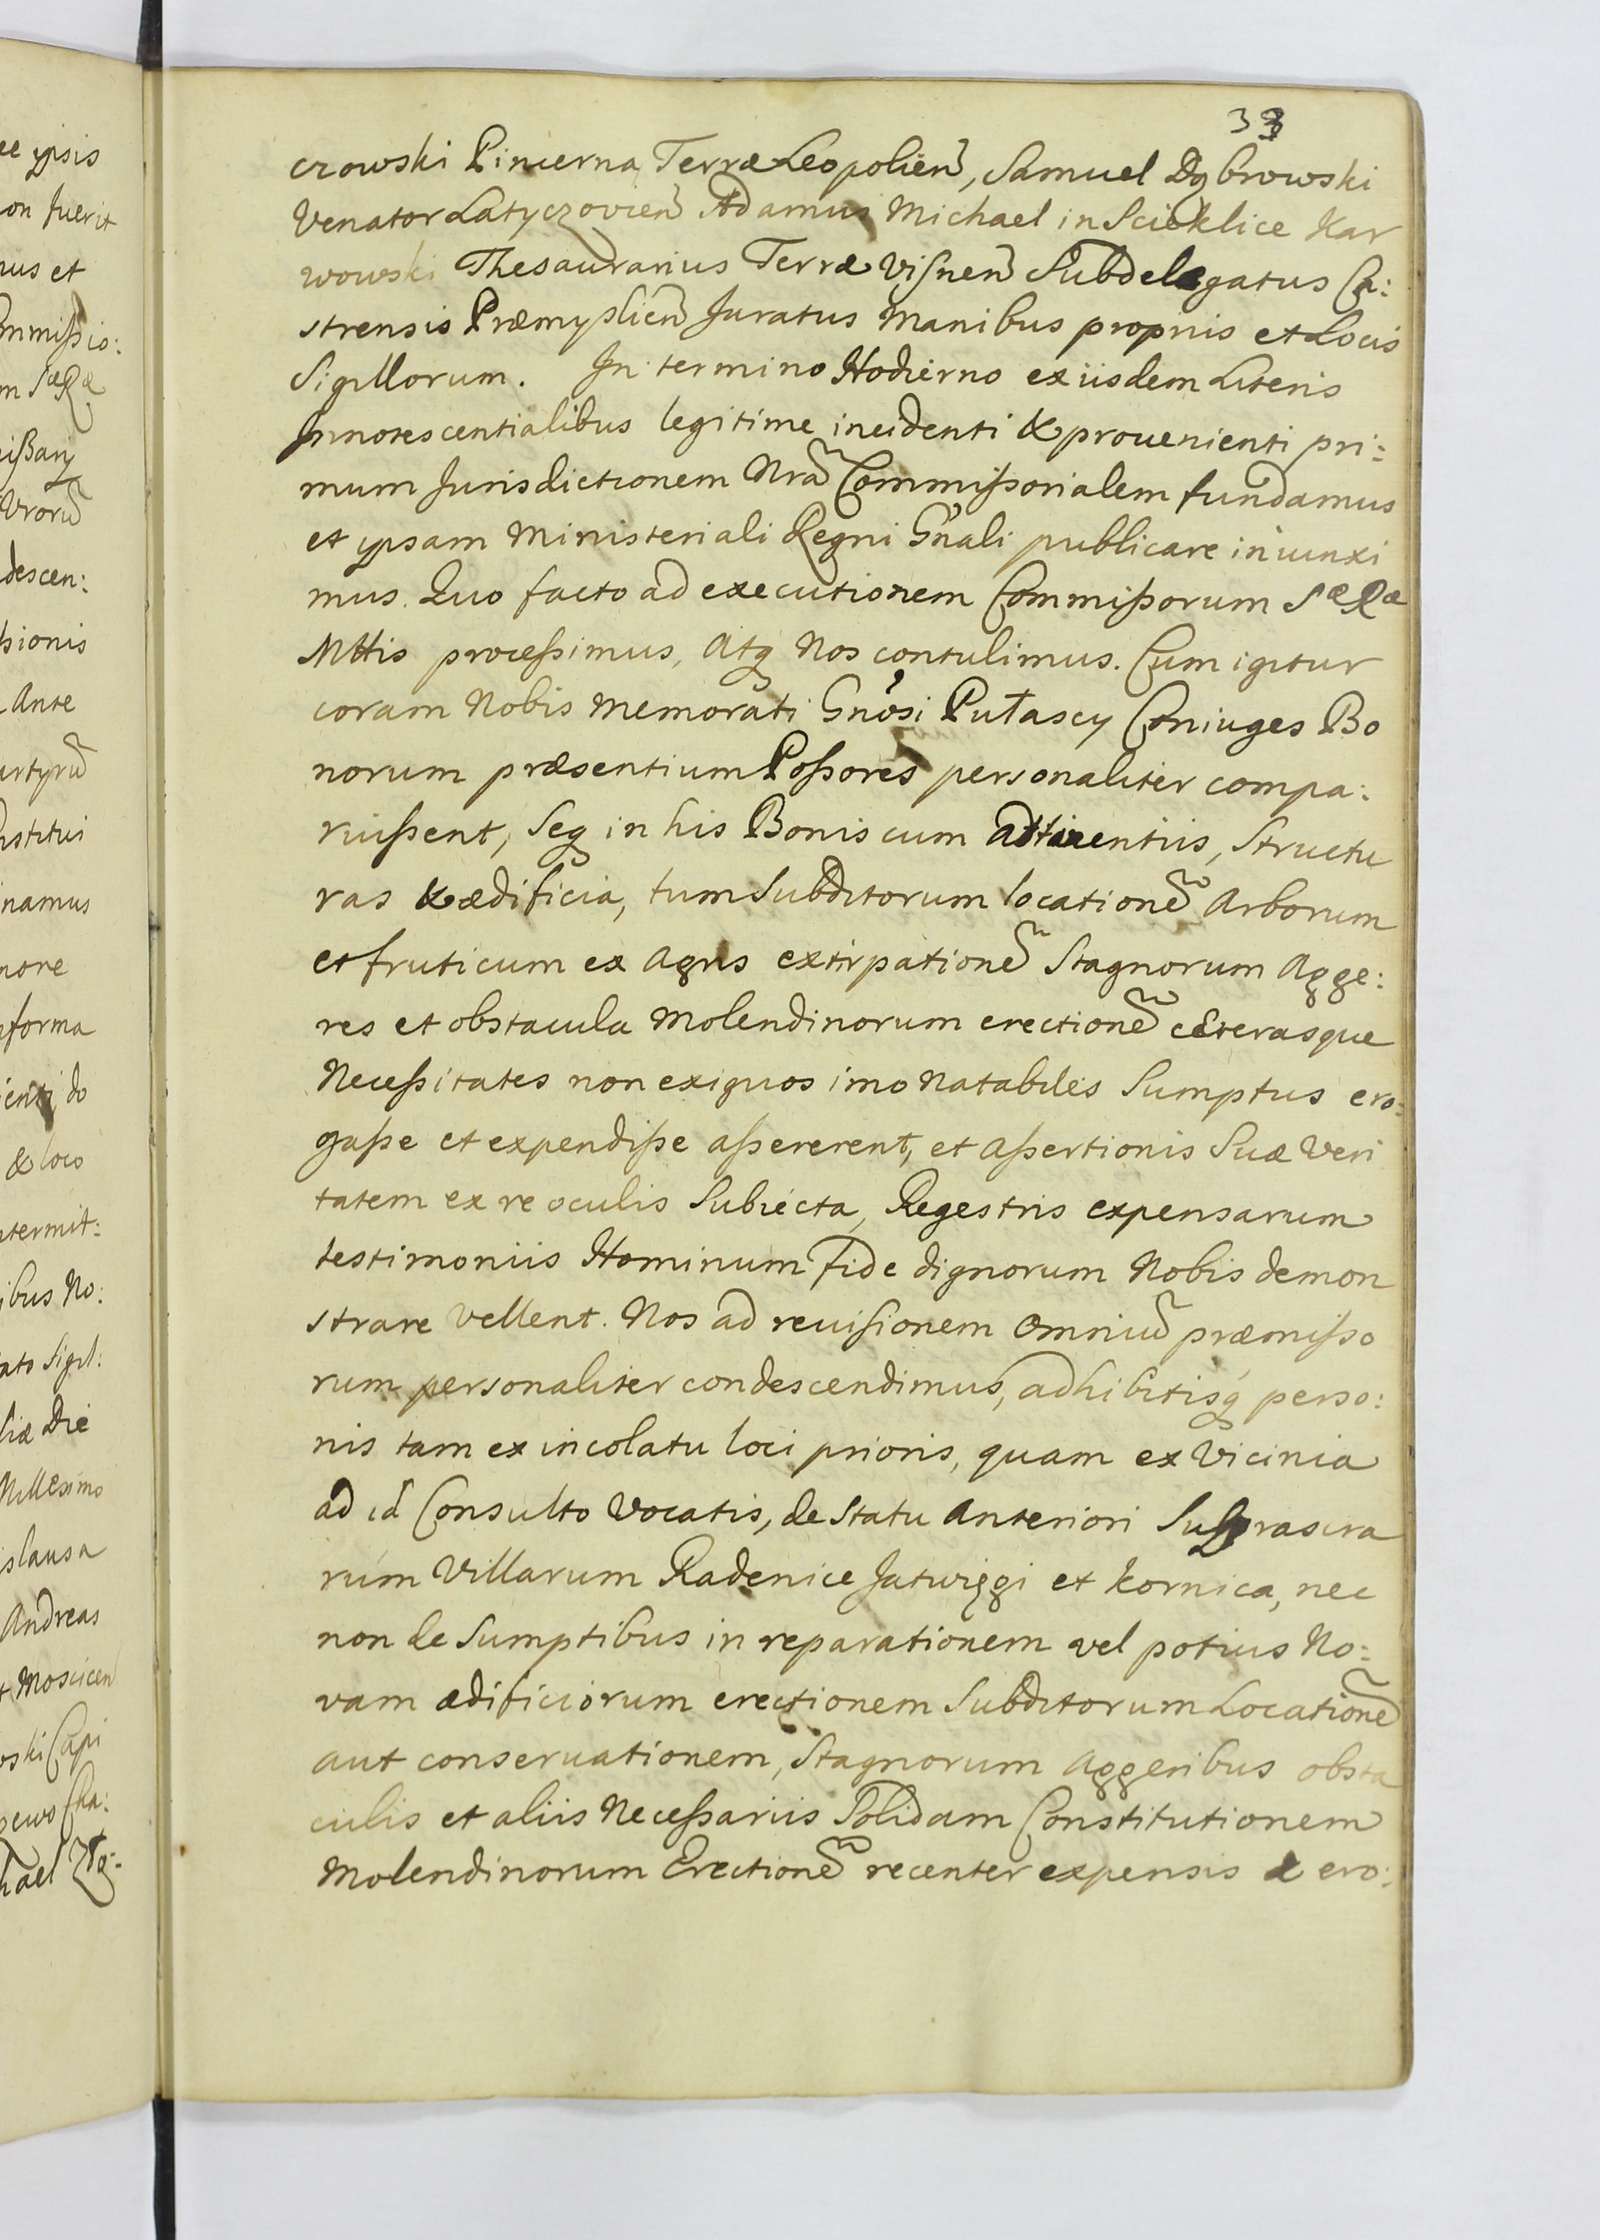 33
czowski Pincerna Terræ Leopolien̄, Samuel Dąbrowski
Venator Latyczovien̄ Adamus Michael in Scieklice Kar
wowski Thesaurarius Terræ Visnen̄ Subdelegatus Ca:
strensis Præmyslien̄ Juratus Manibus proprijs et Locis
Sigillorum. In termino Hodierno ex iisdem Literis
Innotescentialibus legitime incidenti & prouenienti pri:
mum Jurisdictionem Nrām Commißorialem fundamus
et ypsam Ministeriali Regni Gn̄ali publicare iniunxi
mus. Quo facto ad executionem Commißorum Sæ Ræ
Mttis proceßimus, Atq Nos contulimus. Cum igitur
coram Nobis Memorati Gnōsi Putascy Coniuges Bo
norum præsentium Poßores personaliter compa:
ruißent, Seq in his Bonis cum attinentiis, Structu
ras & ædificia, tum Subditorum locationē Arborum
et fruticum ex Agris extirpationē Stagnorum Agge:
res et obstacula Molendinorum erectionē cæterasque
Neceßitates non exiguos imo Natabiles Sumptus ero:
gaße et expendiße aßererent, et Aßertionis Suæ Veri
tatem ex re oculis Subiecta, Regestris expensarum
testimoniis Hominum fide dignorum Nobis demon
strare Vellent. Nos ad reuisionem Omniū præmißo
rum personaliter condescendimus, adhibitisq perso:
nis tam ex incolatu loci prioris, quam ex Vicinia
ad id Consulto Vocatis, de Statu Anteriori
rum Villarum Radenice Jatwięgi et Kornica, nec
non de Sumptibus in reparationem vel potius No:
vam ædificiorum erectionem Subditorum Locationē
aut conseruationem, Stagnorum Aggeribus obsta
culis et aliis Neceßariis Solidam Constitutionem
Molendinorum Erectionē recenter expensis & ero: